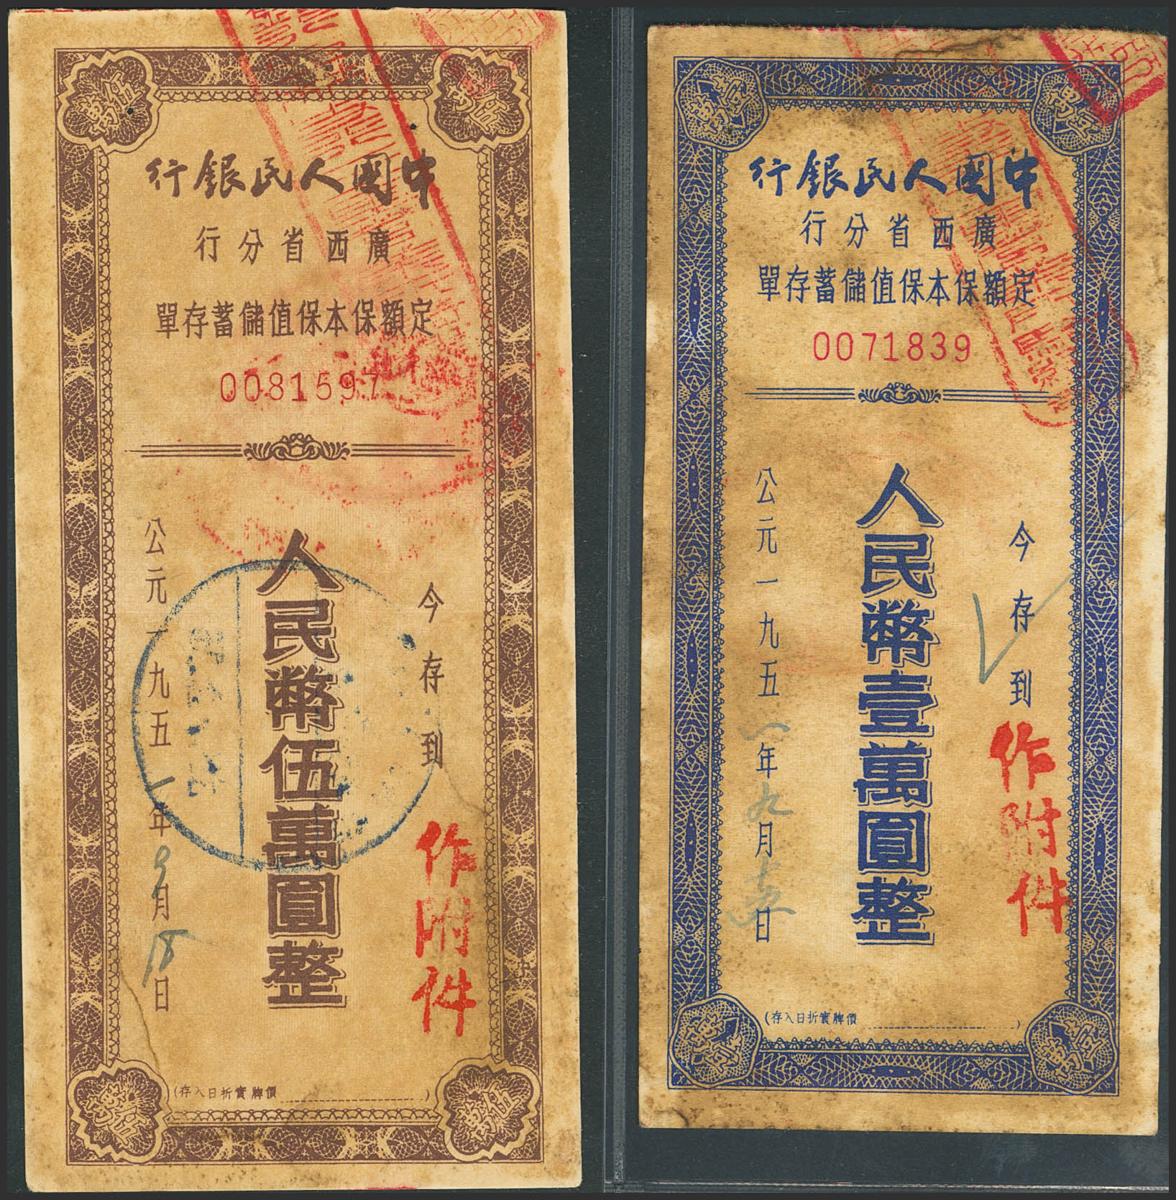 伍萬
伍萬
中國人民銀行
廣西省分行
定額保本保值儲蓄存單
0081597
今存到
人民幣伍萬圓整
公元一九五一年9月18日
作附件
(存入日折實牌價
)
伍萬
伍萬
壹萬
壹萬
中國人民銀行
廣西省分行
定額保本保值儲蓄存單
0071839
今存到
人民幣壹萬圓整
公元一九五一年九月十五日
作附件
(存入日折實牌價
)
壹萬
壹萬